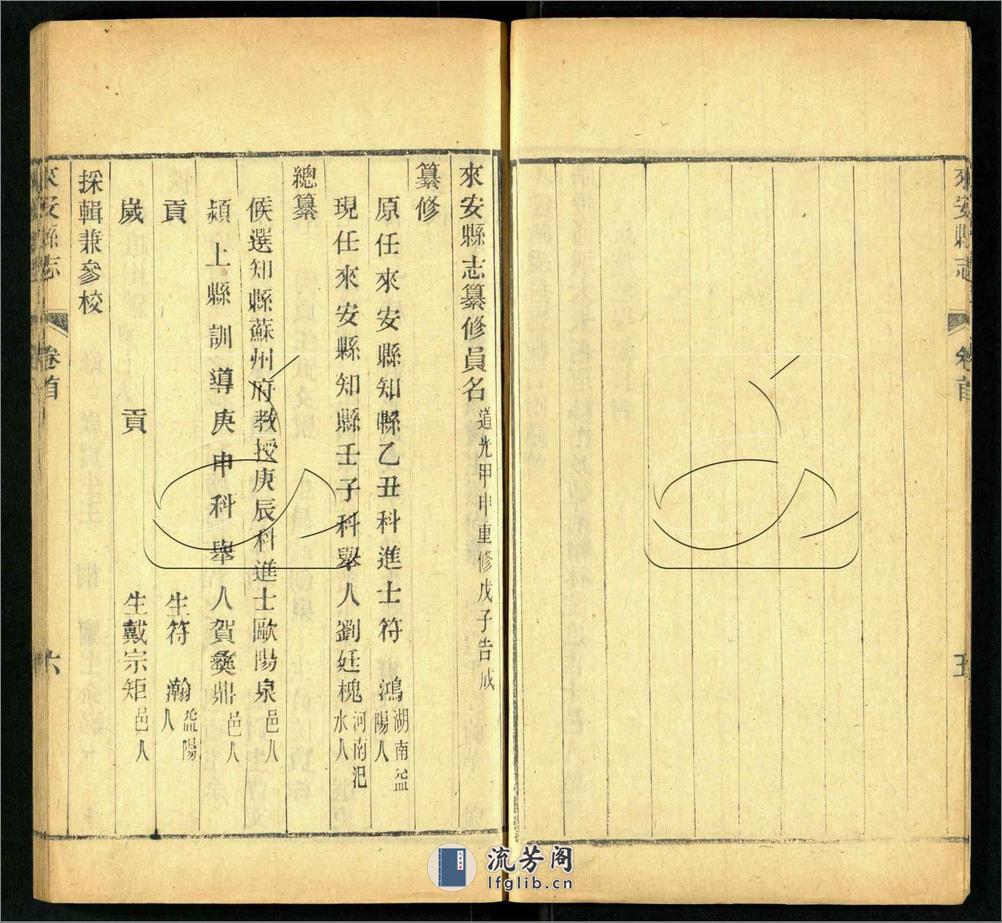 來安縣志
卷首
五
來安縣志纂修員名道光甲申重修戊子告成
纂修
原任來安縣知縣乙丑科進士符鴻湖南益陽人
現任來安縣知縣壬子科舉人劉廷槐河南汜水人
總纂
候選知縣蘇州府教授庚辰科進士歐陽泉邑人
潁上縣訓導庚申科舉人賀彝鼎邑人
貢生符瀚益陽人
歲貢生戴宗矩邑人
採輯兼參校
來安縣志
卷首
六
流芳阁
lfglib.cn